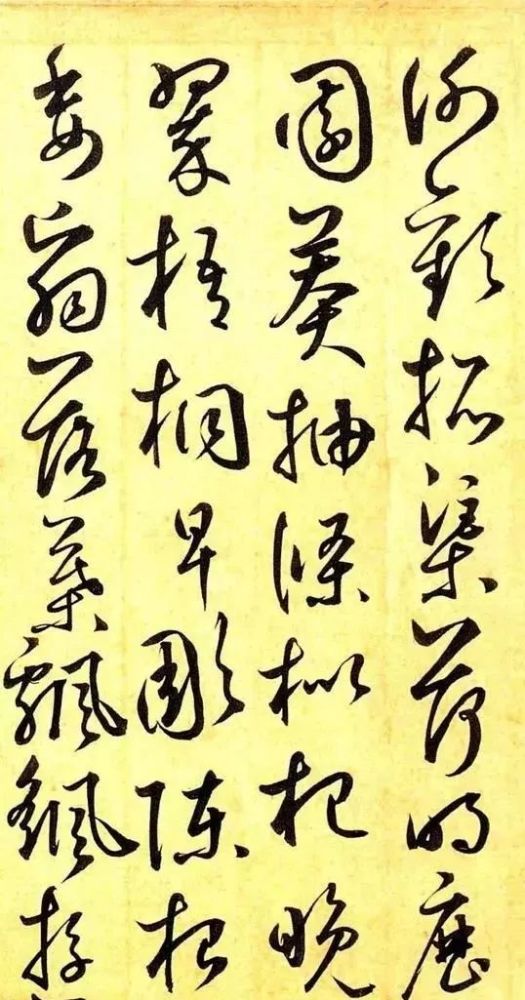 謝歡招渠荷的歷
園莽抽條枇杷晚
翠梧桐早彫陳根
委翳落葉飄颻游